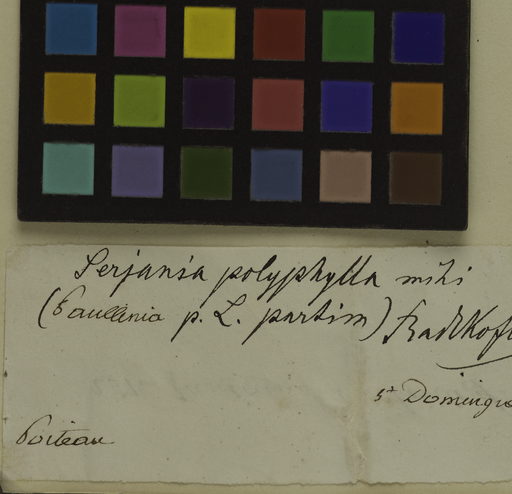 Serjania polyphylla mihi
(Paullinia p. L. partim) Radlkof
St Domingo
Poiteau